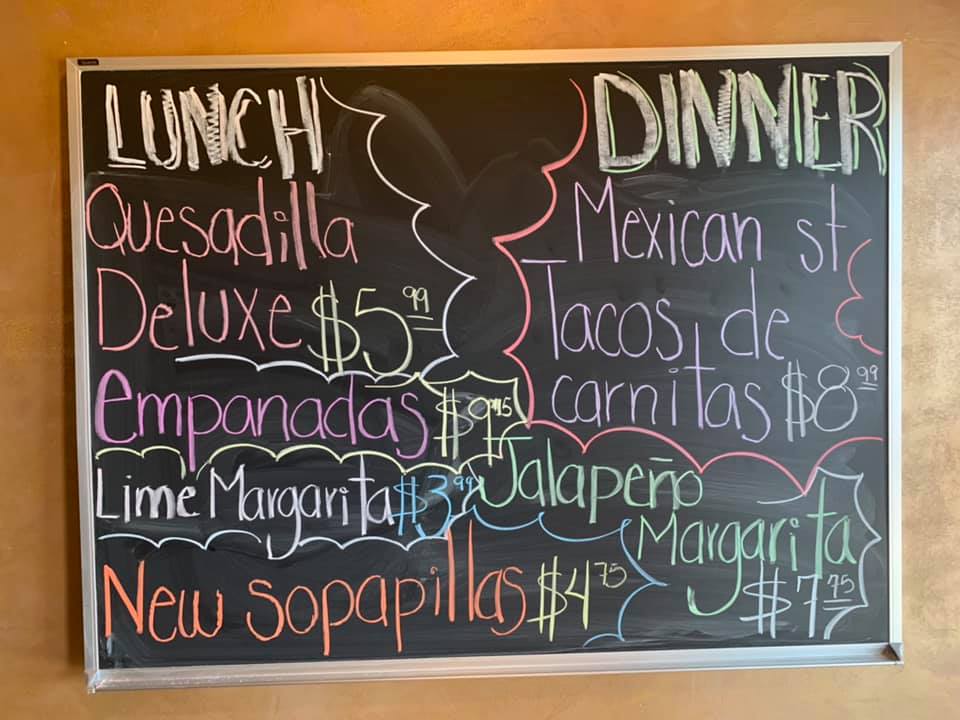 LUNCH
Quesadilla
Deluxe $5.99
empanadas $9.75
Lime Margarita $3.99
New sopapillas $4.75
DINNER
Mexican st
Tacos de
carnitas $8.99
Jalapeño
Margarita
$7.75